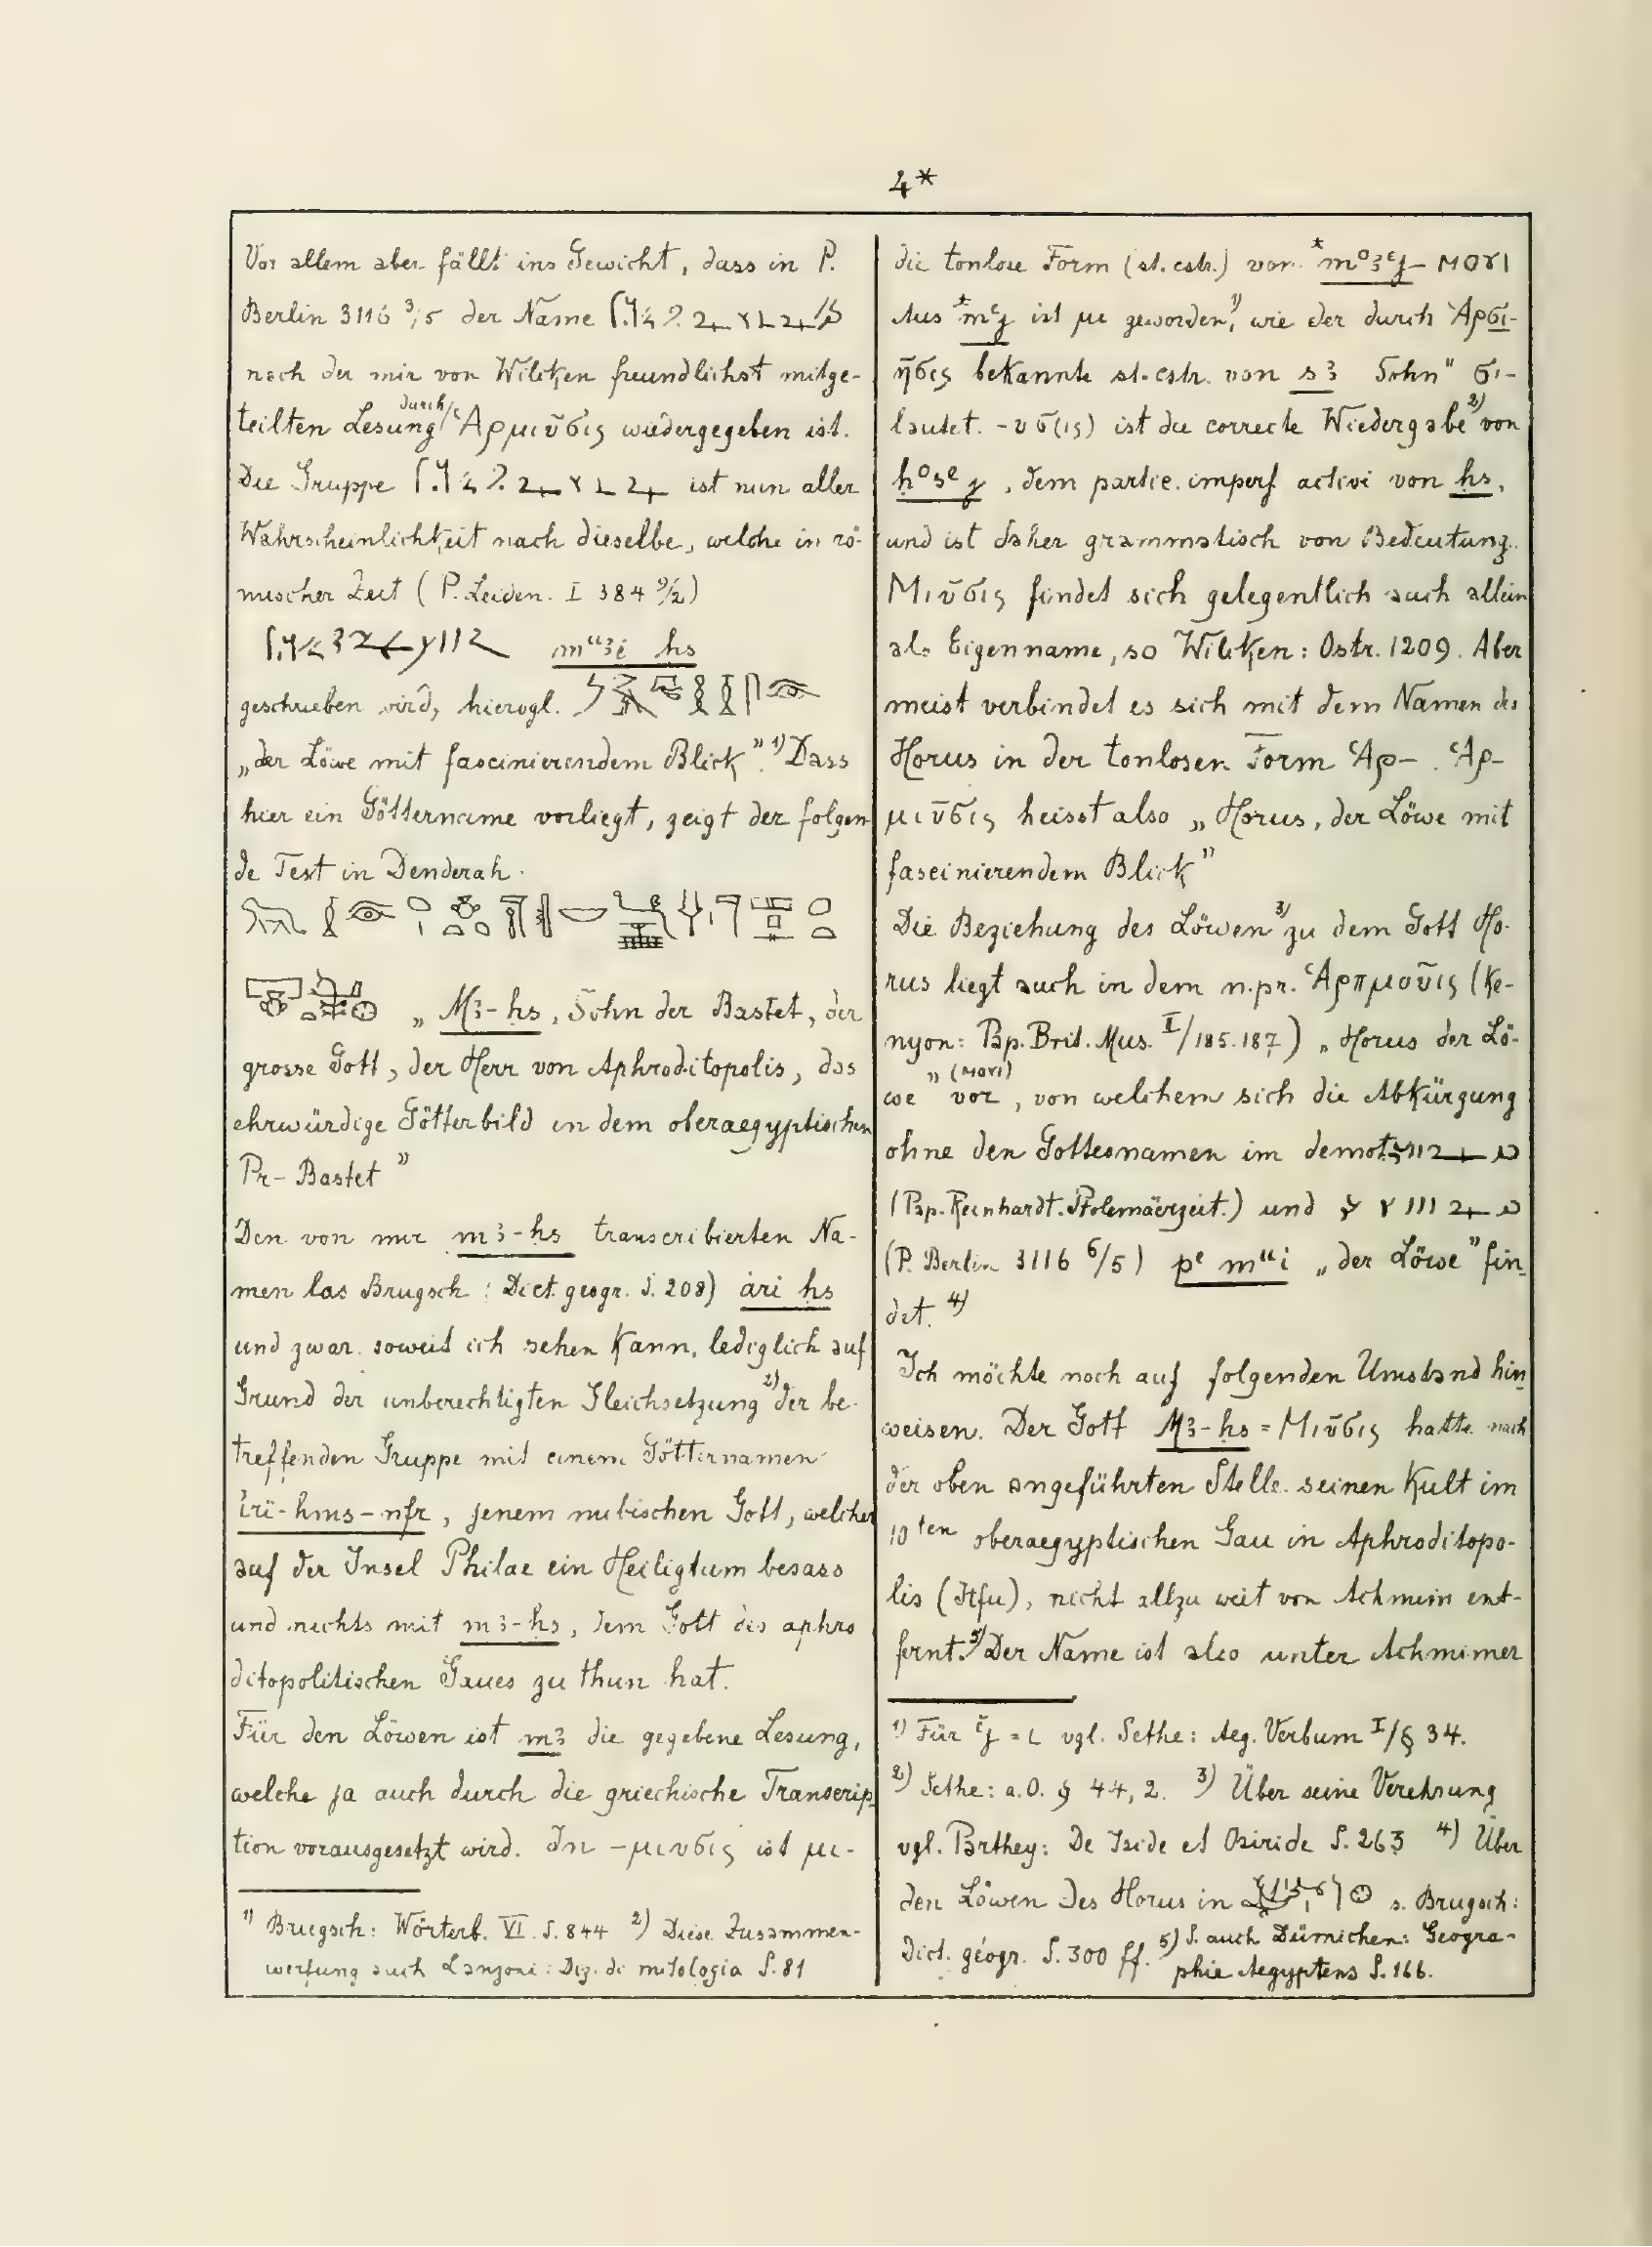 4*
Vor allem aber fällt ins Gewicht, dass in P.
Berlin 3116 3/5 der Name
nach der mir von Wilcken freundlichst mitge-
teilten Lesung durch Ἁρμινῦσις wiedergegeben ist.
Die Gruppe ist nun aller
Wahrscheinlichkeit nach dieselbe, welche in rö-
mischer Zeit (P. Leiden. I 384 9/2)
mᵘꜣi ḥs
geschrieben wird, hierogl.
„der Löwe mit fascinierendem Blick". 1) Dass
hier ein Göttername vorliegt, zeigt der folgen
de Text in Denderah.
„Mꜣ-ḥs, Sohn der Bastet, der
grosse Gott, der Herr von Aphroditopolis, das
ehrwürdige Götterbild in dem oberaegyptischen
Pr-Bastet"
Den von mir mꜣ-ḥs transcribierten Na-
men las Brugsch (Dict. geogr. S. 208) ari ḥs
und zwar soweit ich sehen kann, lediglich auf
Grund der unberechtigten Gleichsetzung 2) der be-
treffenden Gruppe mit einem Götternamen
irï-ḥms-nfr, jenem nubischen Gott, welcher
auf der Insel Philae ein Heiligtum besass
und nichts mit mꜣ-ḥs, dem Gott des aphro
ditopolitischen Gaues zu thun hat.
Für den Löwen ist mꜣ die gegebene Lesung,
welche ja auch durch die griechische Transcrip
tion vorausgesetzt wird. In -μινυσις ist μι-
1) Brugsch: Wörterb. VI. S. 844 2) Diese Zusammen-
werfung auch Lanzone: Diz. di mitologia S. 81
die tonlose Form (st. cstr.) von *mᵒꜣᵉj - ⲙⲟⲩⲓ
Aus *mᵉj ist μι geworden, 1) wie der durch Ἀρσι-
ῆσις bekannte st. cstr. von sꜣ Sohn" σι-
lautet. -υσ(ις) ist die correcte Wiedergabe 2) von
ḥᵒsᵉj, dem partic. imperf activi von ḥs,
und ist daher grammatisch von Bedeutung.
Μιῦσις findet sich gelegentlich auch allein
als Eigenname, so Wilcken: Ostr. 1209. Aber
meist verbindet es sich mit dem Namen des
Horus in der tonlosen Form Ἁρ-. Ἁρ-
μιῦσις heisst also „Horus, der Löwe mit
fascinierendem Blick"
Die Beziehung des Löwen 3) zu dem Gott Ho-
rus liegt auch in dem n.pr. Ἁρπμοῦις (Ke-
nyon: Pap. Brit. Mus. I/185.187) „Horus der Lö-
we" (ⲙⲟⲩⲓ) vor, von welchem sich die Abkürzung
ohne den Gottesnamen im demot.
(Pap. Reinhardt. Ptolemäerzeit.) und
(P. Berlin 3116 6/5) pᵉ mᵘi „der Löwe" fin-
det. 4)
Ich möchte noch auf folgenden Umstand hin
weisen. Der Gott Mꜣ-ḥs = Μιῦσις hatte nach
der oben angeführten Stelle seinen Kult im
10ten oberaegyptischen Gau in Aphroditopo-
lis (Itfu), nicht allzu weit von Achmim ent-
fernt. 5) Der Name ist also unter Achmimer
1) Für ĭj = ι vgl. Sethe: Aeg. Verbum I/§ 34.
2) Sethe: a.O. § 44, 2. 3) Über seine Verehrung
vgl. Parthey: De Iside et Osiride S. 263 4) Über
den Löwen des Horus in s. Brugsch:
Dict. géogr. S. 300 ff. 5) S. auch Dümichen: Geogra-
phie Aegyptens S. 166.